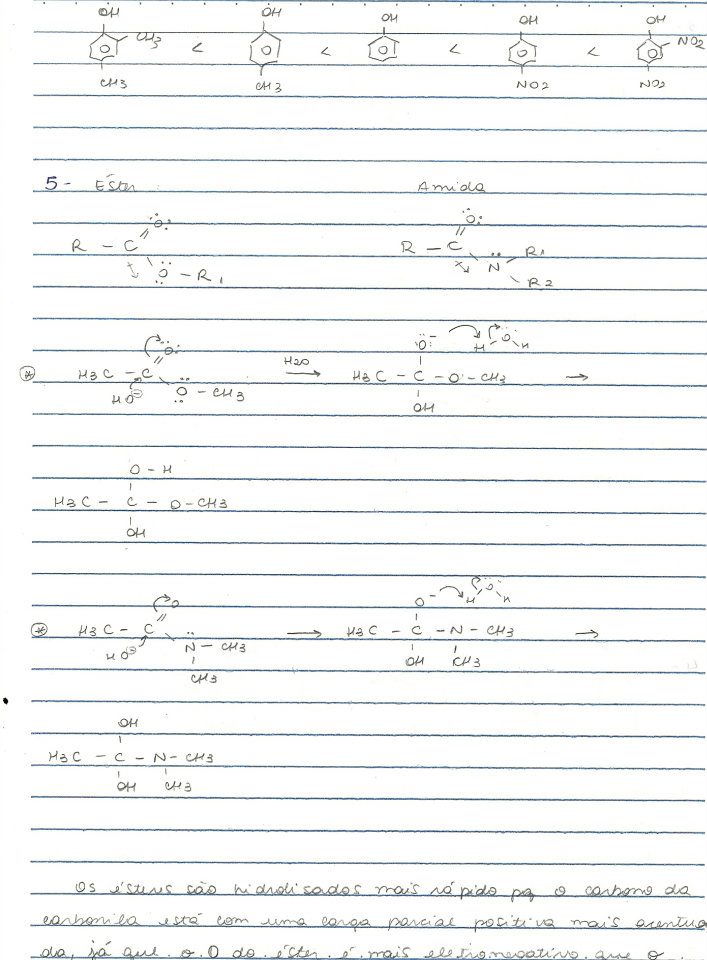 OH OH OH OH OH
CH3 < < < < NO2
CH3 CH3 NO2 NO2
5- Éster Amida
O O
R - C R - C R1
O - R1 N
R2
O O- O
H H
H3C - C H2O H3C - C - O - CH3
HO⊖ O - CH3
OH
O - H
H3C - C - O - CH3
OH
O O- O
H H
H3C - C H3C - C - N - CH3
HO⊖ N - CH3 OH CH3
CH3
OH
H3C - C - N - CH3
OH CH3
Os ésteres são hidrolisados mais rápido pq o carbono da
carbonila está com uma carga parcial positiva mais acentua
da, já que o O do éster é mais eletronegativo que o